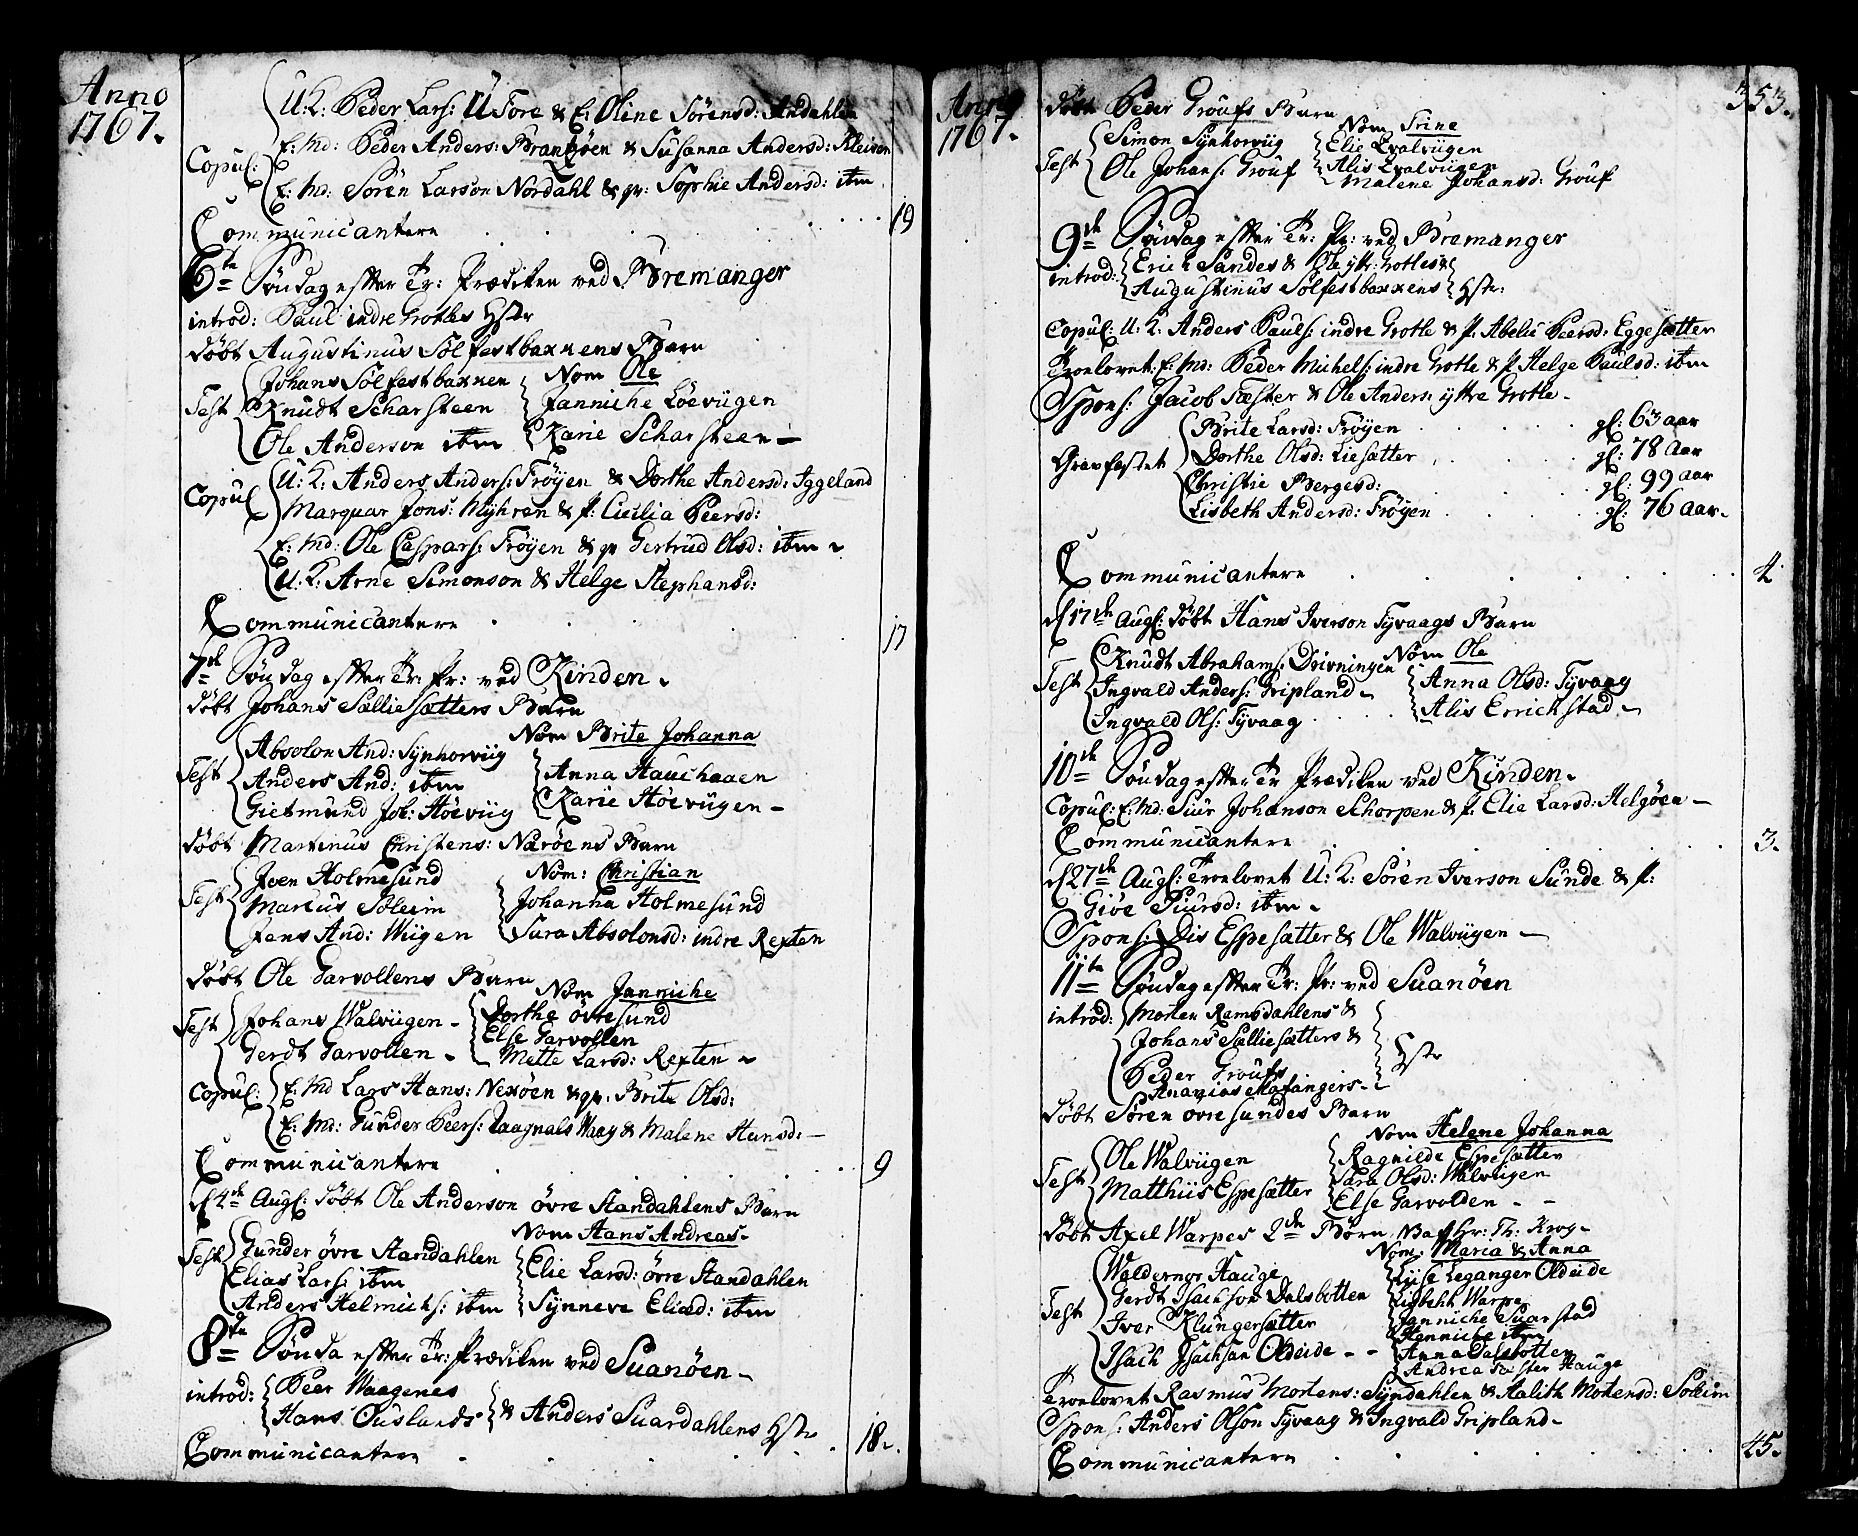 Anno
1767.
U: K: Peder Lars: U Fore & E: Oline Sörensd: Andahlen
Copul: E: Md: Peder Anders: Brandzöen & Susanna Andersd: Kleiven
E: Md: Sören Larson Nordahl & qv: Sophie Andersd: itm.
Communicantere 19
6te Söndag effter Tr: Prædiken ved Bremanger
introd: Paul indre Grotles Hstr
döbt Augustinus Solfestbakkens Barn
Nom Ole
Test Johans Solfestbakken
Knudt Scharsteen
Ole Anderson itm
Janniche Löeviigen
Karie Scharsteen
Copul U: K: Anders Anders: Fröyen & Dorthe Andersd: Iggeland
Marquar Jons: Myhren & P: Cicilia Peersd:
E: Md: Ole Caspars: Fröyen & qv Gertrud Olsd: itm
U: K: Arne Simonson & Helge Stephansd:
Communicantere 17
7de Söndag effter Tr: Pr: ved Kinden.
döbt Johans Sælliesætters Barn
Nom Brite Johanna
Test Absolon And: Synhorviig
Anders And: itm
Gietmund Joh: Höeviig
Anna Hauchaaen
Karie Höeviigen
döbt Martinus Christens: Naröens Barn
Nom: Christian
Test Iven Holmesund
Marcus Soleim
Jens And: Wiigen
Johanna Holmesund
Sara Absolonsd: indre Rexten
döbt Ole Garvollens Barn
Nom Janniche
Test Johans Walviigen
Gerdt Garvollen
Dorthe övresund
Else Garvollen
Mette Larsd: Rexten
Copul: E: Md Lars Hans: Nexöen & qv. Brite Olsd:
E: Md: Gunder Peers: Waag & Malene Hansd:
Communicantere 9
d 4de Aug: döbt Ole Anderson övre Standahlens Barn
Nom Hans Andreas
Test Gunder övre Standahlen
Elias Lars: itm
Anders Helmichs: itm
Elie Larsd: övre Standahlen
Synneve Eliæd: itm
8de Sönda effter Tr: Prædiken ved Suanöen
introd: Peer Waagenes
Hans Ouslands & Anders Suardahlens Hstr
Communicantere 18.
Anno
1767.
353.
döbt Peder Groufs Barn
Nom Trine
Test Simon Synhorviig
Ole Johans: Grouf
Elie Hvalviigen
Alis Hvalviigen
Malene Johansd: Grouf
9de Söndag effter Tr: Pr: ved Bremanger
introd: Erich Sandes & Ole yttr: Grotles &
Augustinus Solfestbakkens Hstr:
Copul: U: K: Anders Pauls: indre Grotle & P. Abelie Peersd: Eggesætter
Troelovet: E: Md: Peder Michels: indre Grotle & P Helge Paulsd: itm
Spons: Jacob Fæster & Ole Anders: yttre Grotle
Gravfæstet Brite Larsd: Fröyen gl: 63 aar
Dorthe Olsd: Liesætter gl: 78 Aar
Christie Bergesd: gl: 99 aar
Lisbeth Andersd: Fröyen gl: 76 Aar.
Communicantere 4
d 17de Aug: döbt Hans Iverson Tyvaags Barn
Nom Ole
Test Knudt Abrahams: Drivningen
Ingvald Anders: Gripland
Ingvald Ols: Tyvaag
Anna Olsd: Tyvaag
Alis Errichstad
10de Söndag effter Tr Prædiken ved Kinden.
Copul: E: Md: Siur Johanson Schorpen & P. Elie Larsd: Helgöen
Communicantere 3.
d 27de Aug: Troelovet U: K: Sören Iverson Sunde & P:
Giöe Siursd: itm
Spons: Dis Espesætter & Ole Walviigen
11te Söndag effter Tr: Pr: ved Suanöen
introd: Morten Ramsdahlens &
Johans Sælliesætters &
Peder Groufs
Ananias Hafangers Hstr
döbt Sören övresundes Barn
Nom Helene Johanna
Test Ole Walviigen
Matthiis Espesætter
Ragnilde Espesætter
Sara Olsd: Walviigen
Else Garvolden
döbt Axel Warpes 2de Börn, Th: Krog
Nom: Maria & Anna
Test Waldernor Hauge
Gerdt Isachson Dalsbotten
Iver Klungersætter
Isach Isachsan Oldeide
Liise Leganger Oldeide
Lisbeht Warpe
Janniche Suarstad
Hænniche itm
Anna Dalsbotten
Andrea Hauge
Troelovet Rasmus Mortens: Syndahlen & Aalith Mortensd: Soleim
Spons: Anders Olson Tyvaag & Ingvald Gripland
Communicantere 45.